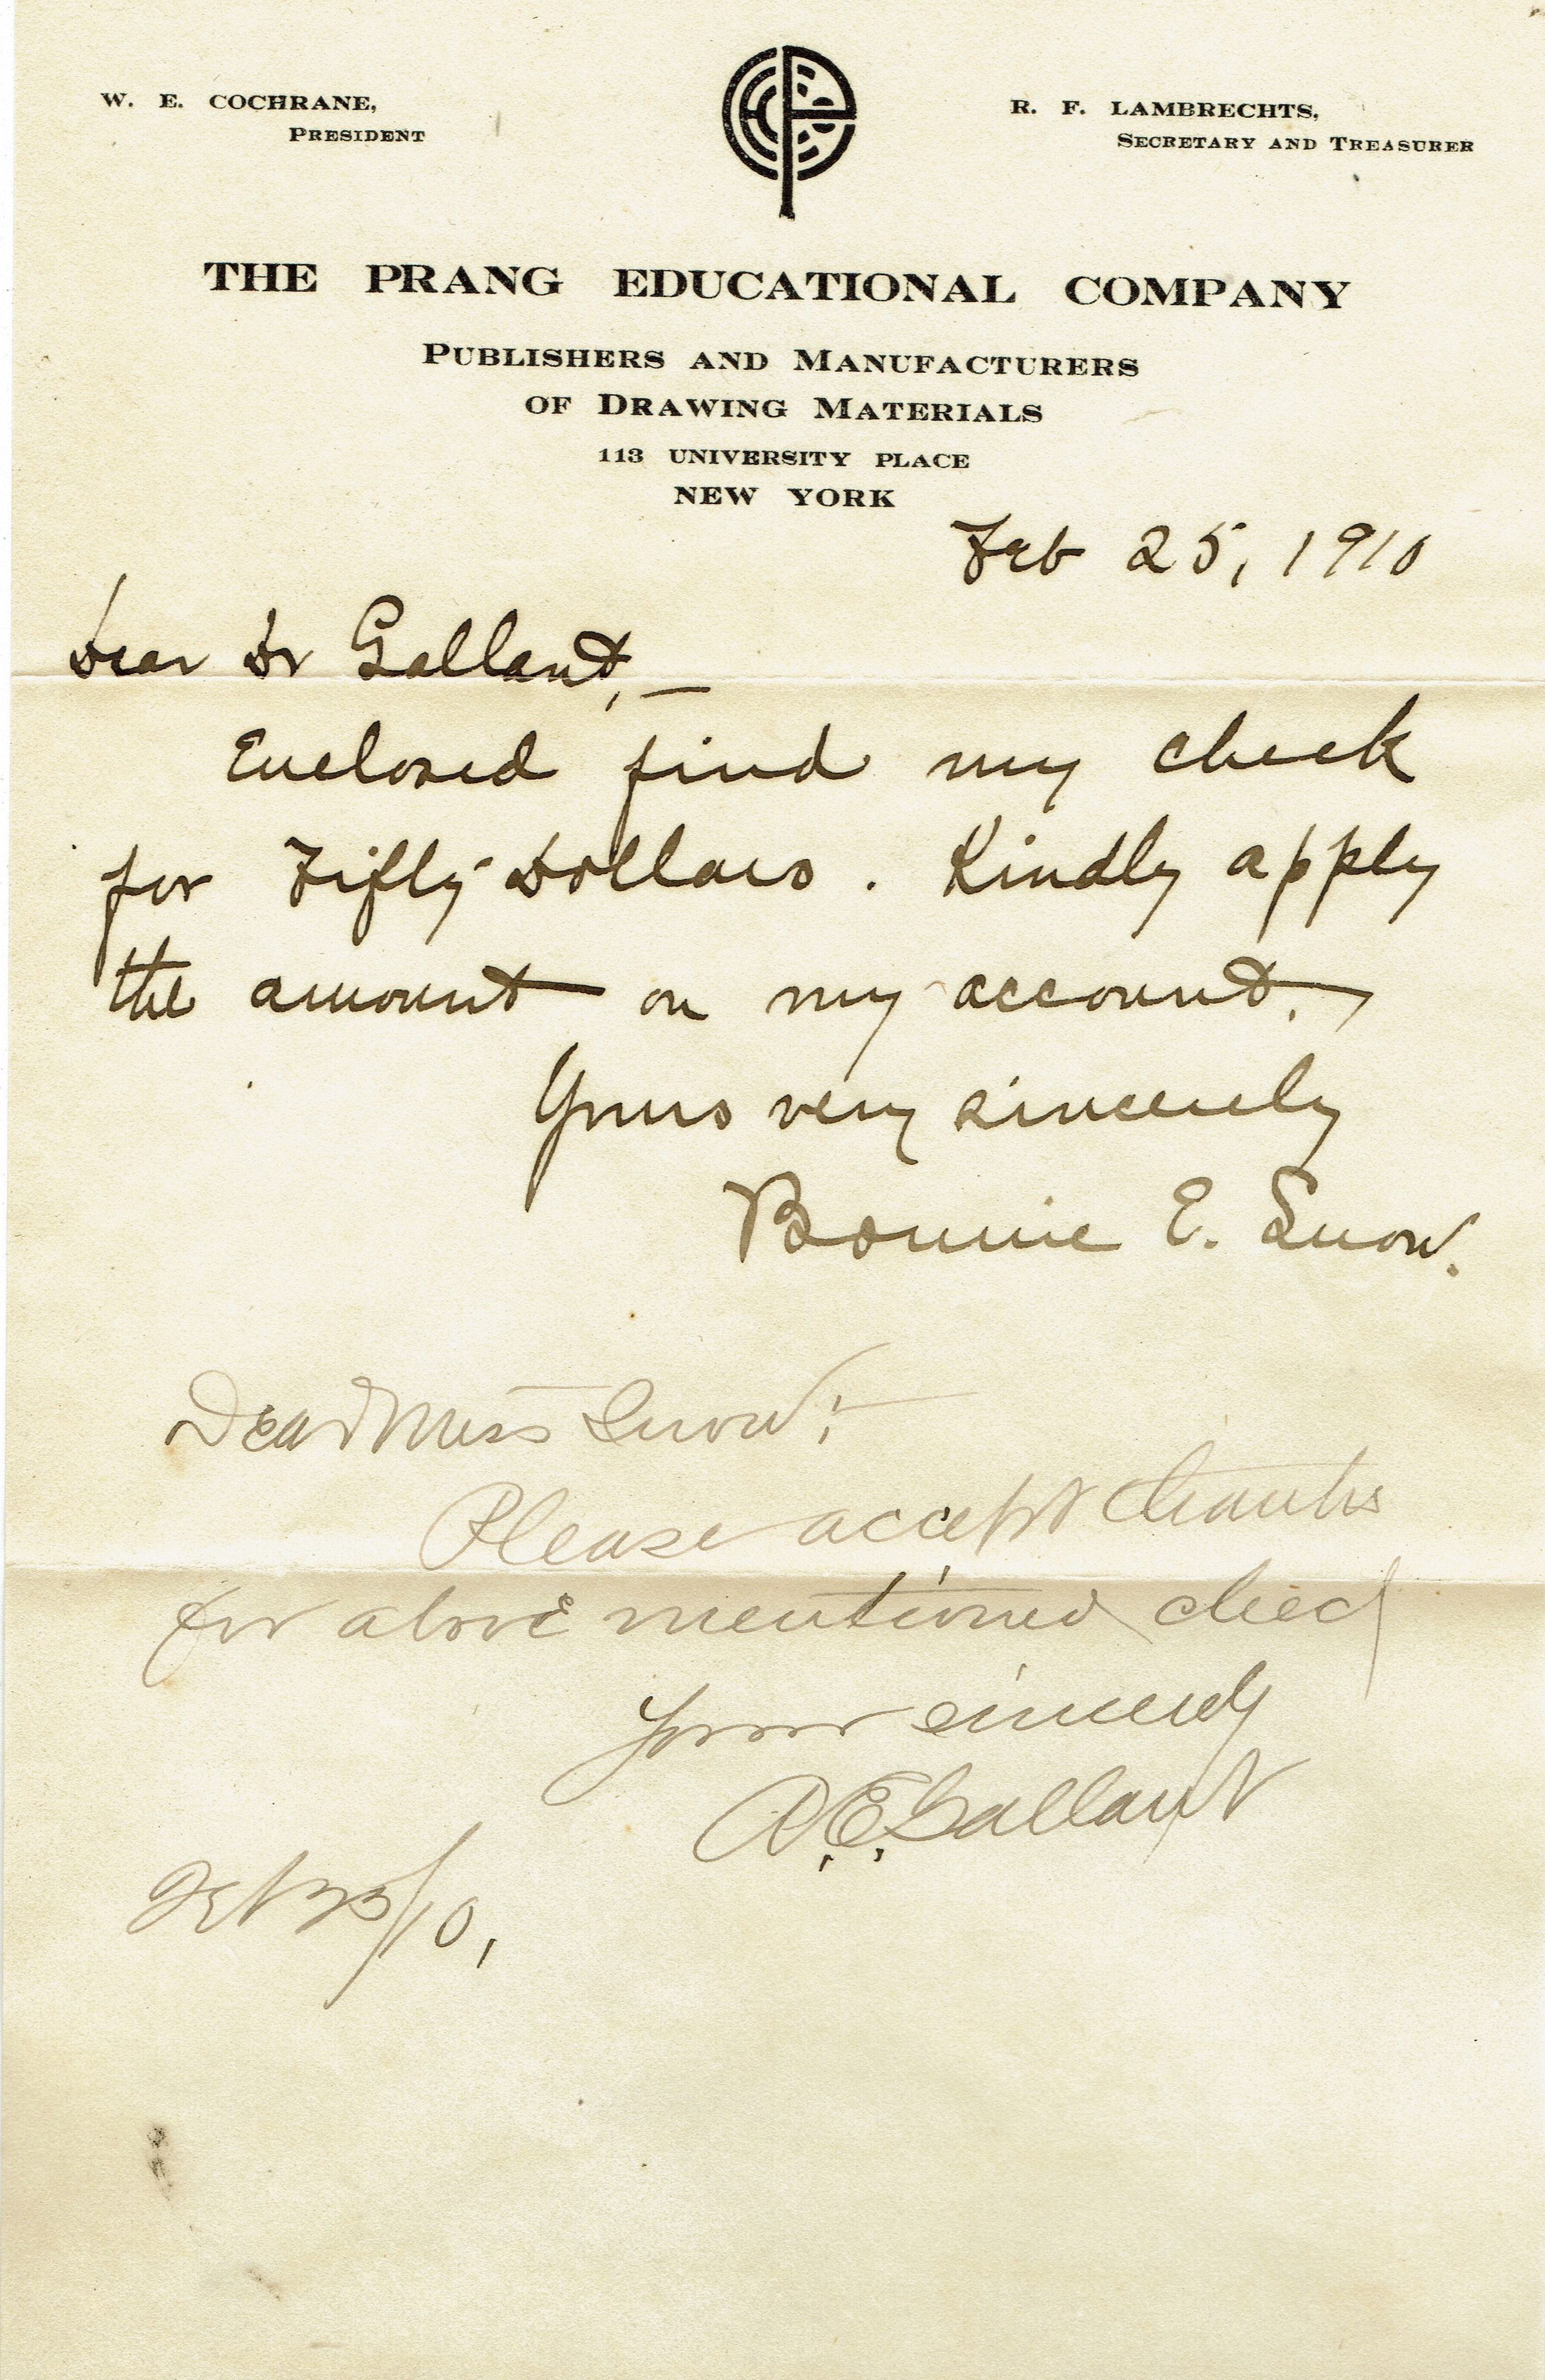 W. E. COCHRANE,
PRESIDENT
R. F. LAMBRECHTS,
SECRETARY AND TREASURER
THE PRANG EDUCATIONAL COMPANY
PUBLISHERS AND MANUFACTURERS
OF DRAWING MATERIALS
113 UNIVERSITY PLACE
NEW YORK
Feb 25, 1910
Dear Dr Gallant, —
Enclosed find my check
for Fifty Dollars. Kindly apply
the amount on my account.
Yours very sincerely
Bonnie E. Snow.
Dear Miss Snow:—
Please accept thanks
for above mentioned check
Yours sincerely
A. E. Gallant
/10,